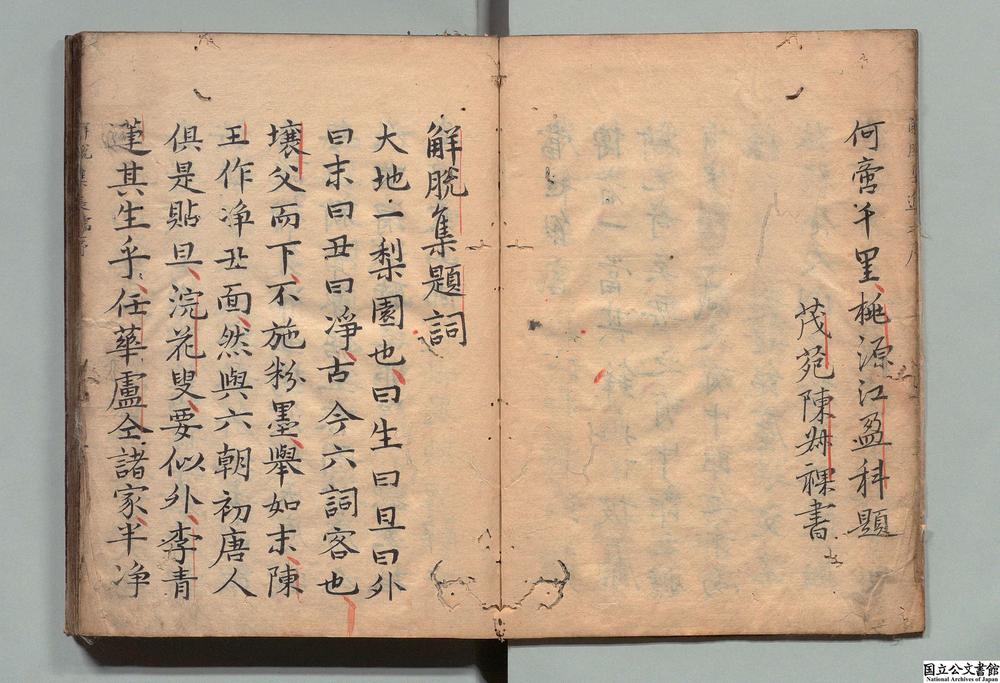 何啻千里桃源江盈科題
茂苑陳 祼書
解脫集題詞
大地一梨園也曰生曰旦曰外
曰末曰丑曰凈古今六詞客也
壤父而下不施粉墨舉如末陳
王作净丑面然與六朝初唐人
俱是貼旦浣花叟要似外李青
蓮其生乎任華盧仝諸家半净
国立公文書館
National Archives of Japan